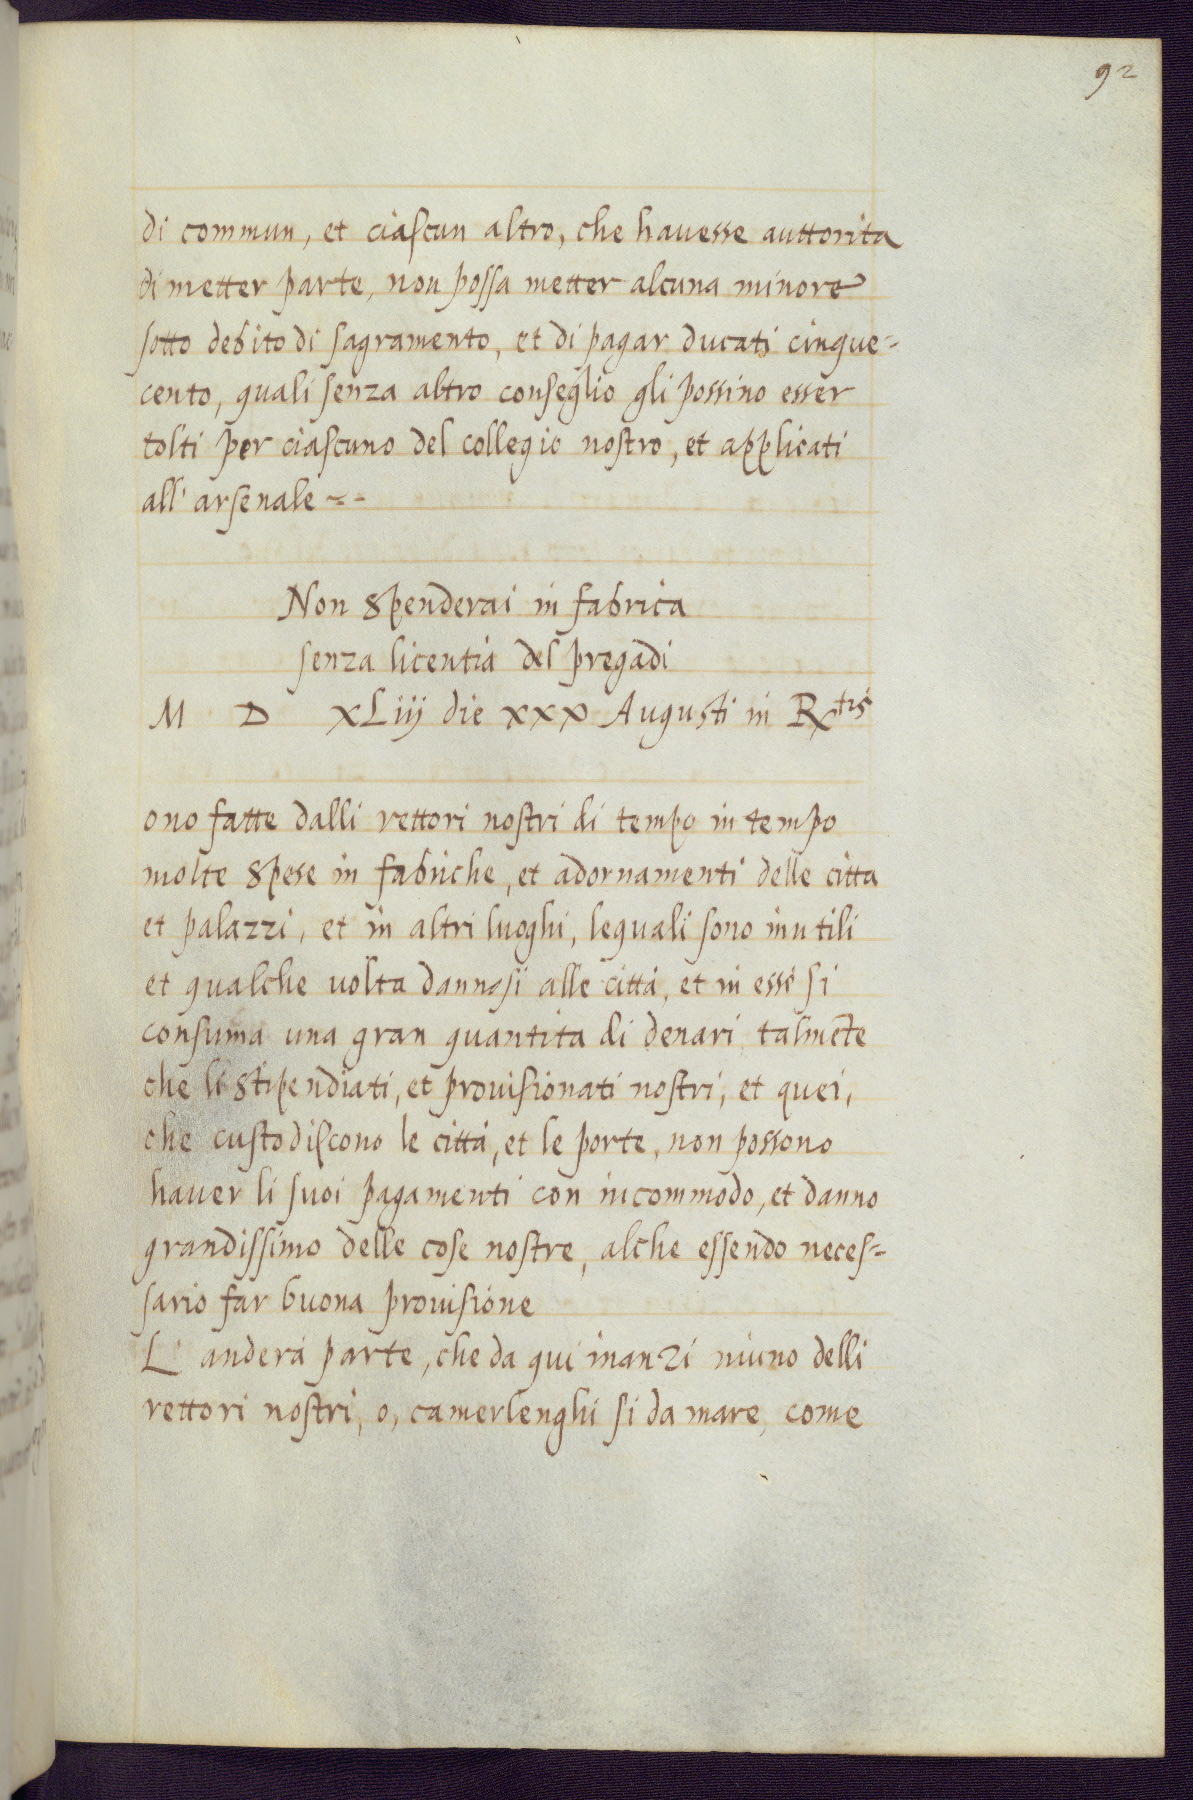 92
di commun, et ciascun altro, che hauesse auttorita
di metter parte, non possa metter alcuna minore
sotto debito di sagramento, et di pagar ducati cinque-
cento, quali senza altro conseglio gli possino esser
tolti per ciascuno del collegio nostro, et applicati
all' arsenale --
Non spenderai in fabrica
senza licentia del pregadi
M D XLiij die xxx Augusti in Rxtis
ono fatte dalli rettori nostri di tempo in tempo
molte spese in fabriche, et adornamenti delle citta
et palazzi, et in altri luoghi, lequali sono inutili
et qualche uolta dannosi alle città, et in esse si
consuma una gran quantita di denari talmēte
che li stipendiati, et prouisionati nostri, et quei,
che custodiscono le città, et le porte, non possono
hauer li suoi pagamenti con incommodo, et danno
grandissimo delle cose nostre, alche essendo neces-
sario far buona prouisione
L' anderà parte, che da qui inanzi niuno delli
rettori nostri, o, camerlenghi si da mare, come